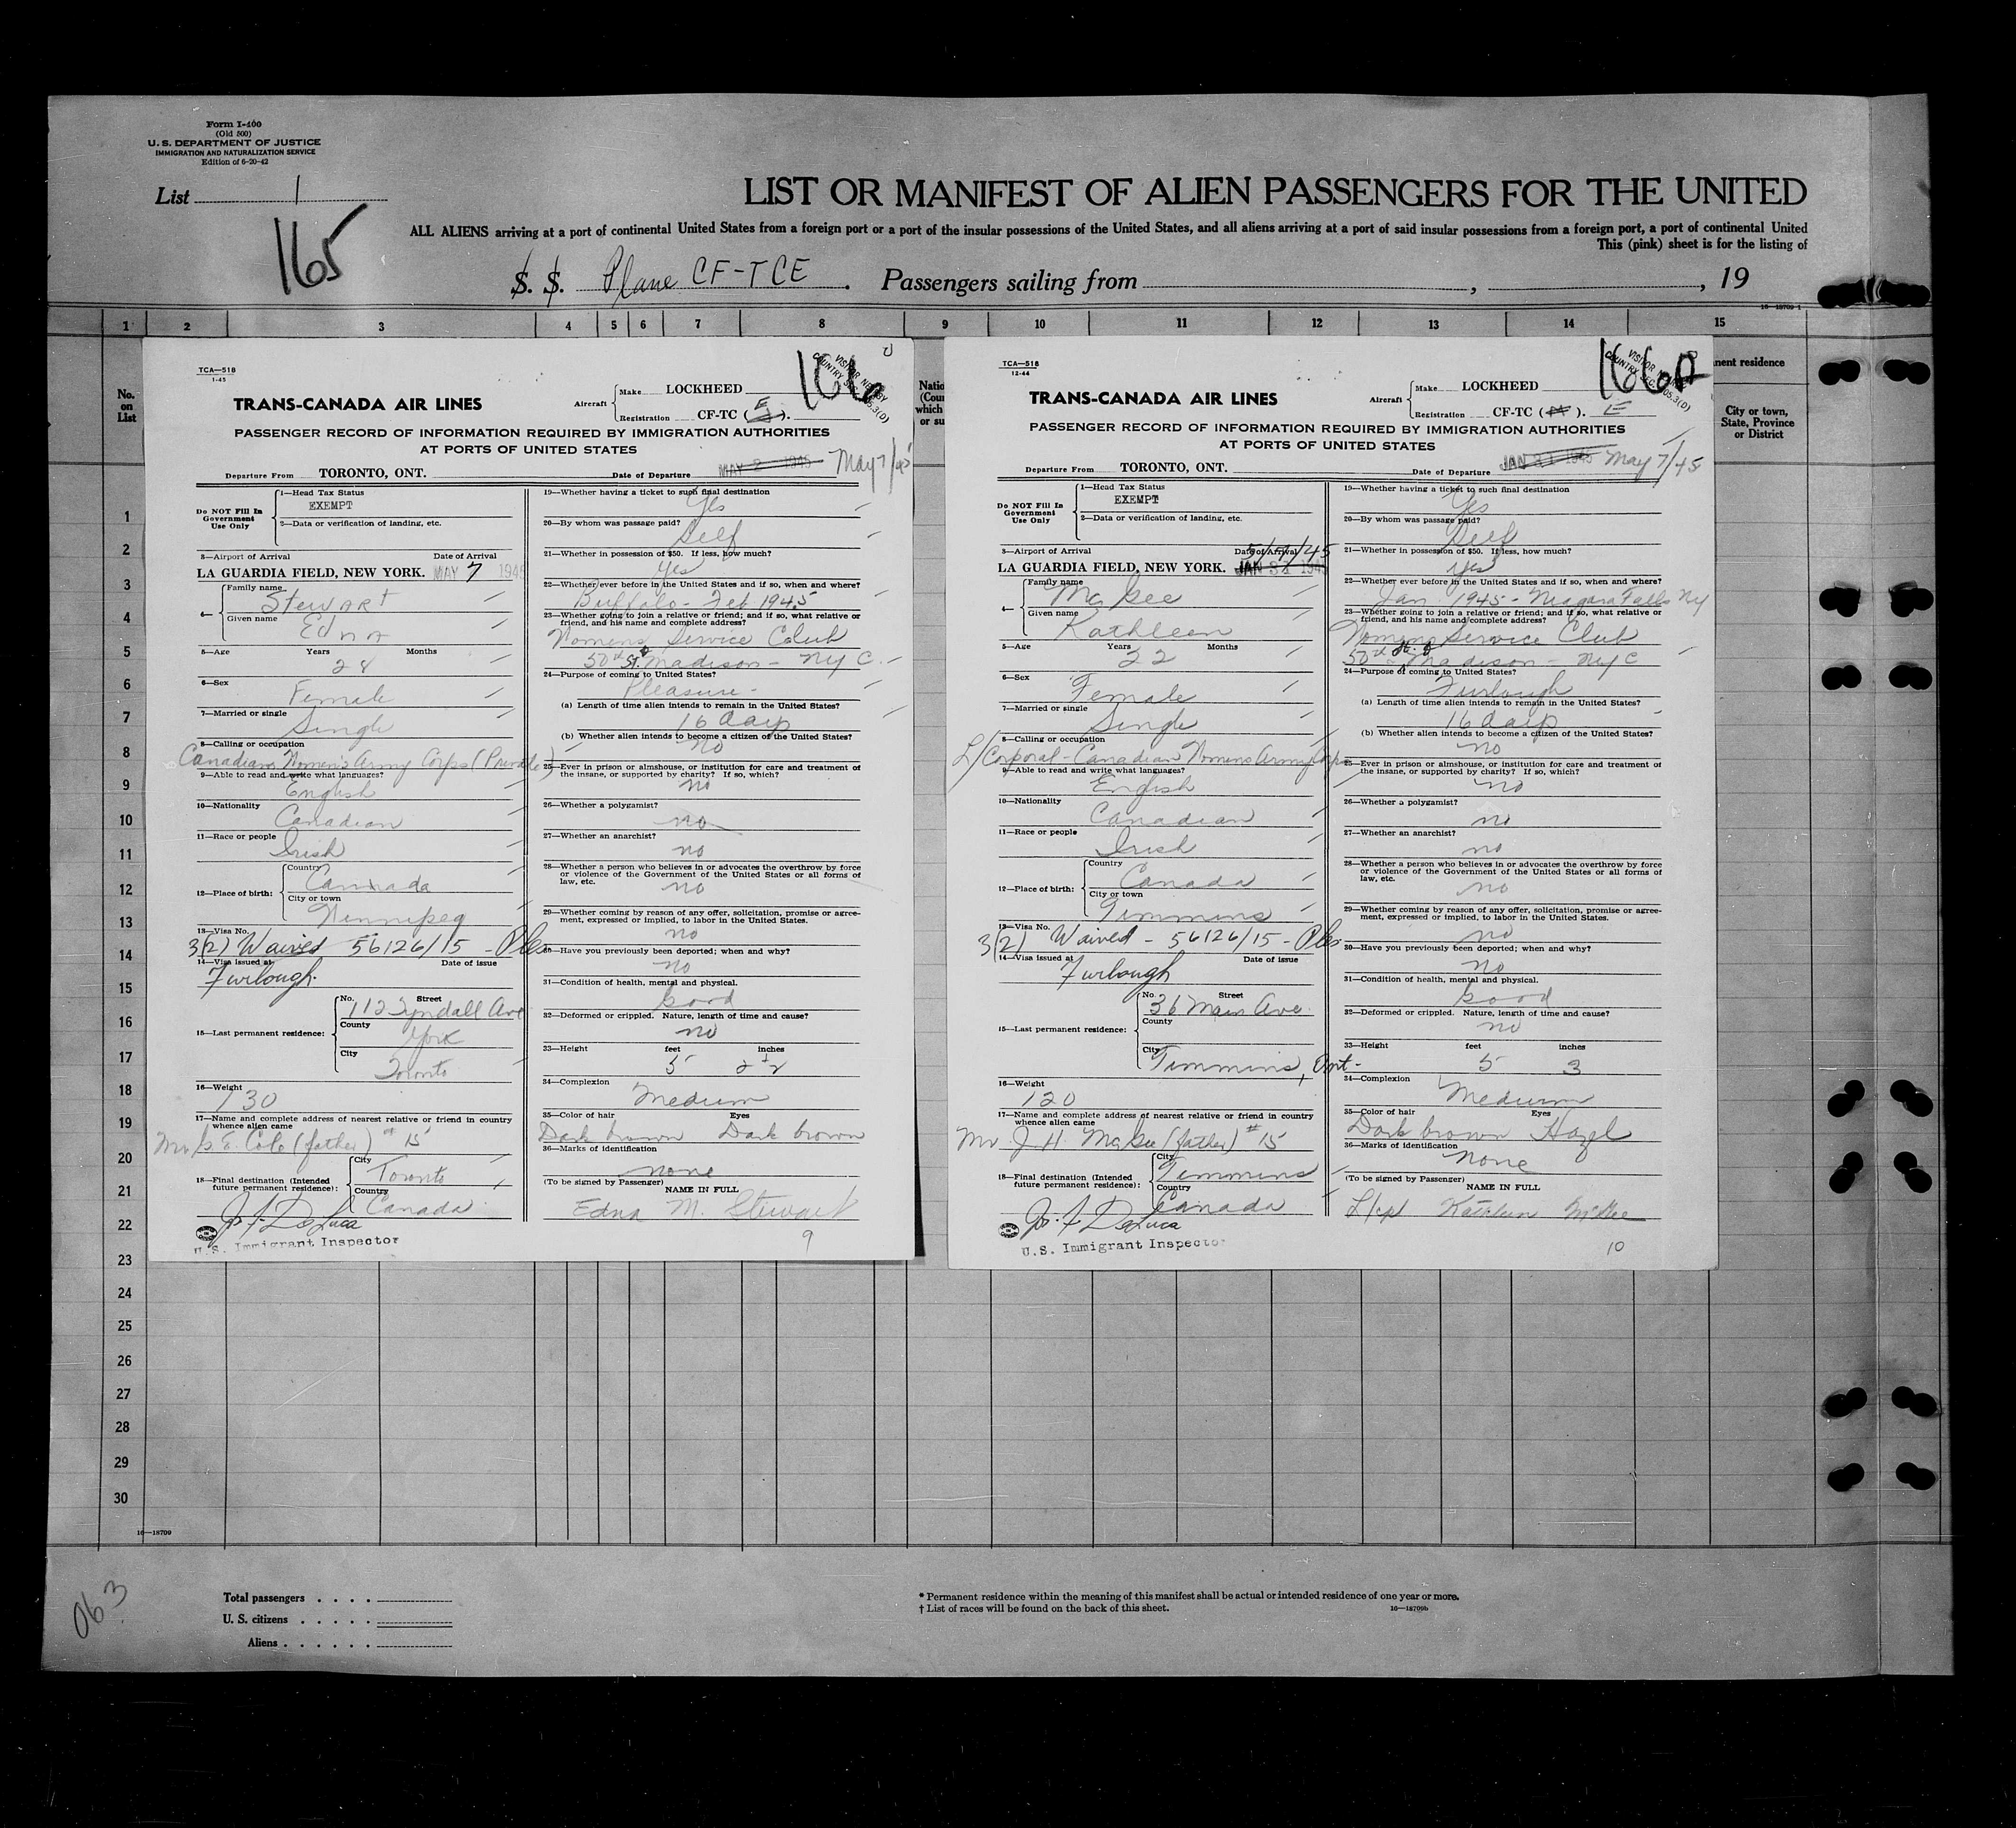 Form I-400
(Old 500)
U. S. DEPARTMENT OF JUSTICE
IMMIGRATION AND NATURALIZATION SERVICE
Edition of 6-20-42
List 1
165
LIST OR MANIFEST OF ALIEN PASSENGERS FOR THE UNITED
ALL ALIENS arriving at a port of continental United States from a foreign port or a port of the insular possessions of the United States, and all aliens arriving at a port of said insular possessions from a foreign port, a port of continental United
This (pink) sheet is for the listing of
S. S. Plane CF-TCE. Passengers sailing from , , 19
16—18709-1
1 2 3 4 5 6 7 8 9 10 11 12 13 14 15
No. on List
nent residence
City or town, State, Province or District
TCA—518
1-45
TRANS-CANADA AIR LINES
Aircraft Make LOCKHEED
Registration CF-TC ( ). E
PASSENGER RECORD OF INFORMATION REQUIRED BY IMMIGRATION AUTHORITIES
AT PORTS OF UNITED STATES
Departure From TORONTO, ONT. Date of Departure MAY 2 1945 May 7/45
Do NOT Fill In Government Use Only
1—Head Tax Status
EXEMPT
2—Data or verification of landing, etc.
3—Airport of Arrival Date of Arrival
LA GUARDIA FIELD, NEW YORK. MAY 7 1945
4— Family name
Stewart
Given name
Edna
5—Age Years Months
28
6—Sex
Female
7—Married or single
Single
8—Calling or occupation
Canadian Women's Army Corps (Private)
9—Able to read and write what languages?
English
10—Nationality
Canadian
11—Race or people
Irish
12—Place of birth: Country
Canada
City or town
Winnipeg
13—Visa No.
3(2) Waived 56126/15 - Ples
14—Visa issued at Date of issue
Furlough.
15—Last permanent residence: No. Street
112 Tyndall Ave
County
York
City
Toronto
16—Weight
130
17—Name and complete address of nearest relative or friend in country whence alien came
E. Cole (father) # 15
18—Final destination (Intended future permanent residence): City
Toronto
Country
Canada
Jos. F. DeLuca
U.S. Immigrant Inspector
19—Whether having a ticket to such final destination
Yes
20—By whom was passage paid?
Self
21—Whether in possession of $50. If less, how much?
Yes
22—Whether ever before in the United States and if so, when and where?
Buffalo - Feb 1945
23—Whether going to join a relative or friend; and if so, what relative or friend, and his name and complete address?
Womens Service Club
50th St. & Madison - NYC.
24—Purpose of coming to United States?
Pleasure -
(a) Length of time alien intends to remain in the United States?
16 days
(b) Whether alien intends to become a citizen of the United States?
No
25—Ever in prison or almshouse, or institution for care and treatment of the insane, or supported by charity? If so, which?
no
26—Whether a polygamist?
no
27—Whether an anarchist?
no
28—Whether a person who believes in or advocates the overthrow by force or violence of the Government of the United States or all forms of law, etc.
no
29—Whether coming by reason of any offer, solicitation, promise or agreement, expressed or implied, to labor in the United States.
no
30—Have you previously been deported; when and why?
no
31—Condition of health, mental and physical.
Good
32—Deformed or crippled. Nature, length of time and cause?
no
33—Height feet inches
5 2½
34—Complexion
Medium
35—Color of hair Eyes
Dark brown Dark brown
36—Marks of identification
none
(To be signed by Passenger) NAME IN FULL
Edna M. Stewart
9
TCA—518
12-44
TRANS-CANADA AIR LINES
Aircraft Make LOCKHEED
Registration CF-TC ( ). E
PASSENGER RECORD OF INFORMATION REQUIRED BY IMMIGRATION AUTHORITIES
AT PORTS OF UNITED STATES
Departure From TORONTO, ONT. Date of Departure JAN 31 1945 May 7/45
Do NOT Fill In Government Use Only
1—Head Tax Status
EXEMPT
2—Data or verification of landing, etc.
3—Airport of Arrival Date of Arrival
LA GUARDIA FIELD, NEW YORK. JAN 31 1945 5/7/45
4— Family name
McGee
Given name
Kathleen
5—Age Years Months
22
6—Sex
Female
7—Married or single
Single
8—Calling or occupation
L/Corporal - Canadian Womens Army Corps
9—Able to read and write what languages?
English
10—Nationality
Canadian
11—Race or people
Irish
12—Place of birth: Country
Canada
City or town
Timmins
13—Visa No.
3(2) Waived - 56126/15 - Ples
14—Visa issued at Date of issue
Furlough
15—Last permanent residence: No. Street
36 Main Ave.
County
City
Timmins, Ont -
16—Weight
120
17—Name and complete address of nearest relative or friend in country whence alien came
Mr. J. H. McGee (father) # 15
18—Final destination (Intended future permanent residence): City
Timmins
Country
Canada
Jos. F. DeLuca
U.S. Immigrant Inspector
19—Whether having a ticket to such final destination
Yes
20—By whom was passage paid?
Self
21—Whether in possession of $50. If less, how much?
Yes
22—Whether ever before in the United States and if so, when and where?
Jan 1945 - Niagara Falls NY
23—Whether going to join a relative or friend; and if so, what relative or friend, and his name and complete address?
Womens Service Club
50th St. & Madison - NYC
24—Purpose of coming to United States?
Furlough
(a) Length of time alien intends to remain in the United States?
16 days
(b) Whether alien intends to become a citizen of the United States?
no
25—Ever in prison or almshouse, or institution for care and treatment of the insane, or supported by charity? If so, which?
no
26—Whether a polygamist?
no
27—Whether an anarchist?
no
28—Whether a person who believes in or advocates the overthrow by force or violence of the Government of the United States or all forms of law, etc.
no
29—Whether coming by reason of any offer, solicitation, promise or agreement, expressed or implied, to labor in the United States.
no
30—Have you previously been deported; when and why?
no
31—Condition of health, mental and physical.
Good
32—Deformed or crippled. Nature, length of time and cause?
no
33—Height feet inches
5 3
34—Complexion
Medium
35—Color of hair Eyes
Dark brown Hazel
36—Marks of identification
none
(To be signed by Passenger) NAME IN FULL
L/cpl Kathleen McGee
10
1
2
3
4
5
6
7
8
9
10
11
12
13
14
15
16
17
18
19
20
21
22
23
24
25
26
27
28
29
30
16—18709
063
Total passengers . . . .
U. S. citizens . . . . .
Aliens . . . . . .
* Permanent residence within the meaning of this manifest shall be actual or intended residence of one year or more.
† List of races will be found on the back of this sheet.
16—18709b